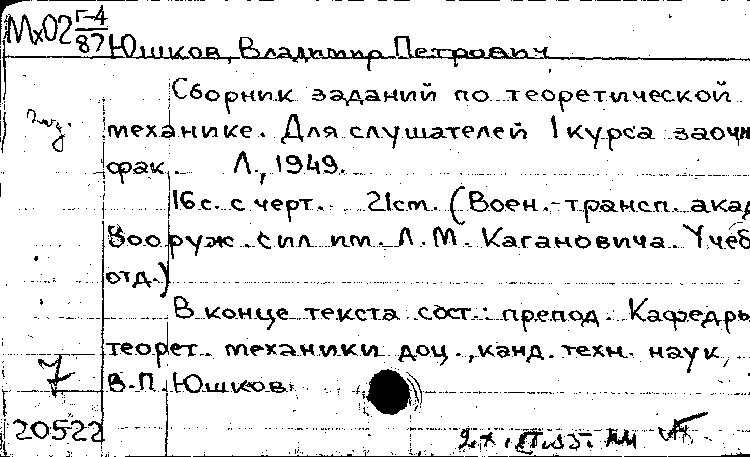 Мх02 Г-4/87
Юшков, Владимир Петрович
Сборник заданий по теоретической
механике. Для слушателей 1 курса заочн
фак. Л., 1949.
16 с. с черт. 21 см. (Воен.-трансп. акад
Вооруж. сил им. Л.М. Кагановича. Учеб
отд.)
В конце текста сост.: препод. Кафедры
теорет. механики доц., канд. техн. наук
В.П. Юшков.
7
20522